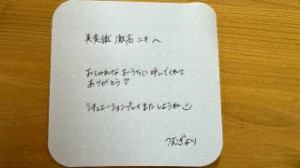 美意識 激高 ニキ へ
おしゃれな おうちに 呼んでくれて
ありがとう♡
シチュエーションプレイ またしようね
つむぎより